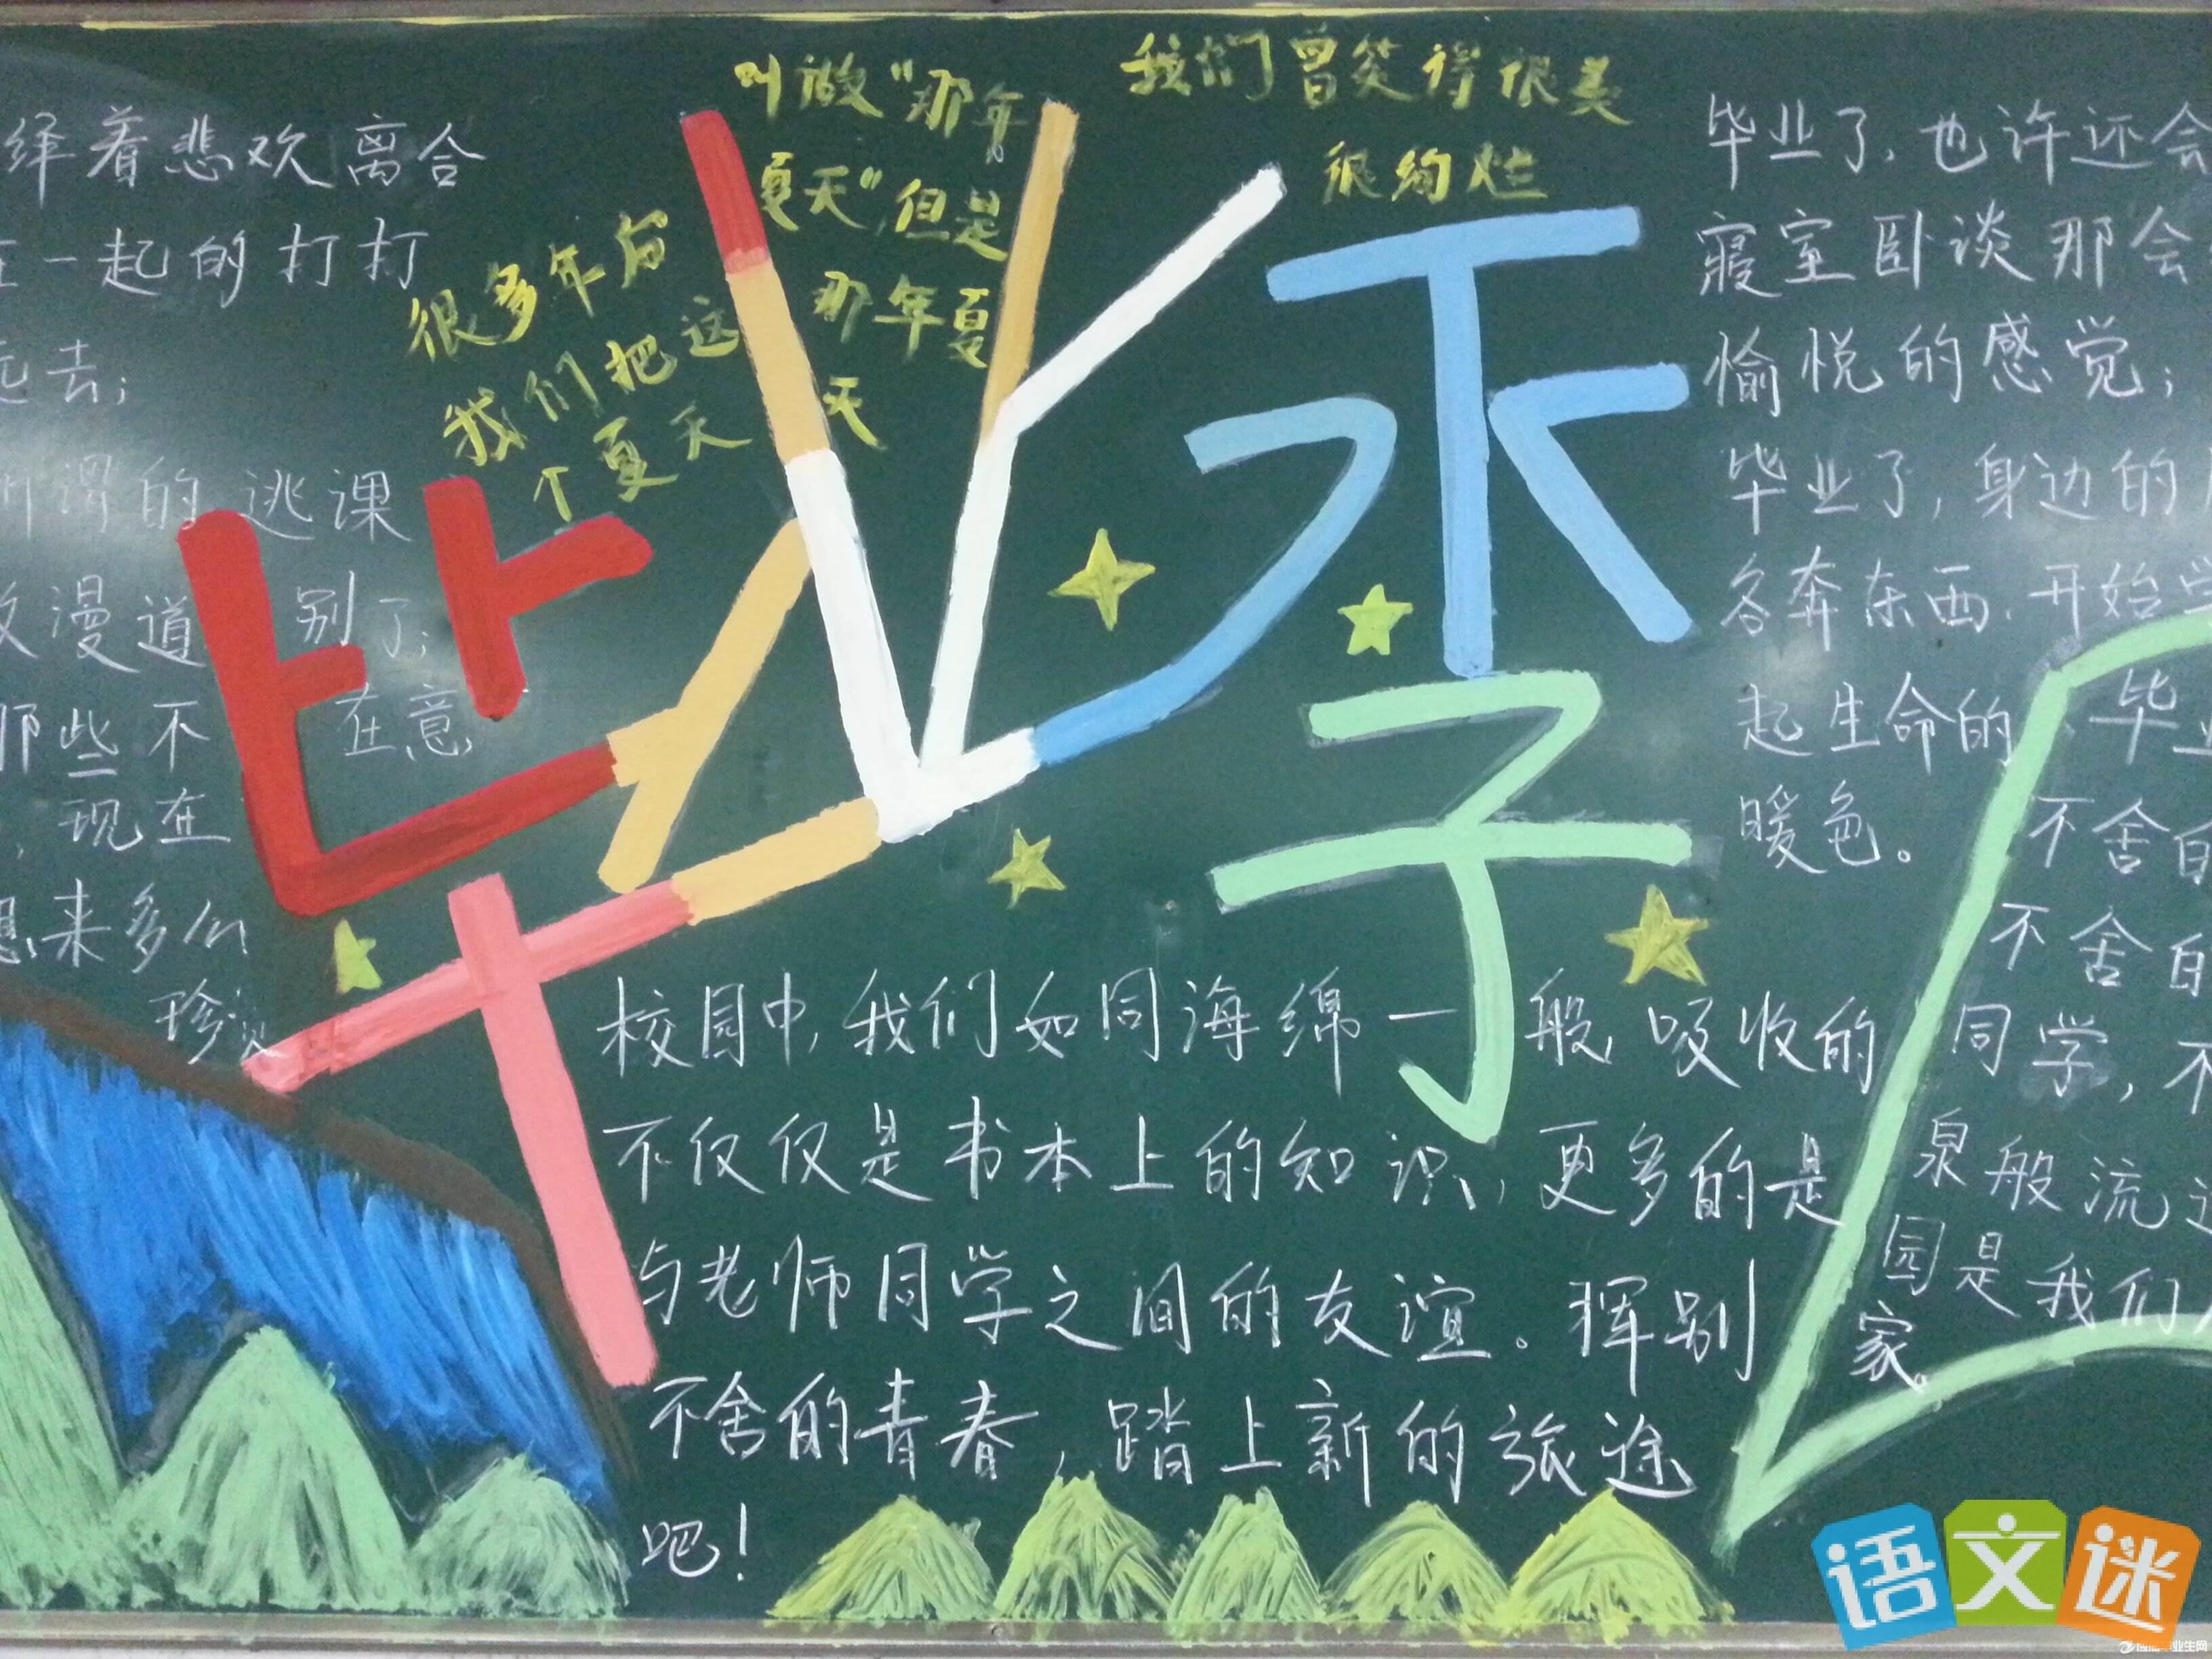 绎着悲欢离合
一起的打打
去;
谓的逃课
漫道 别了;
那些不 在意,
,现在
想来多么
珍贵
很多年后
我们把这
个夏天
叫做“那年
夏天”,但是
那年夏
天
我们曾笑得很美
很绚烂
毕业季
毕业了,也许还会
寝室卧谈那会
愉悦的感觉;
毕业了,身边的
各奔东西,开始学
起生命的
暖色。
校园中,我们如同海绵一般,吸收的
不仅仅是书本上的知识,更多的是
与老师同学之间的友谊。挥别
不舍的青春,踏上新的旅途
吧!
毕业
不舍的
不舍的
同学,不
泉般流
园是我们
家。
语文迷